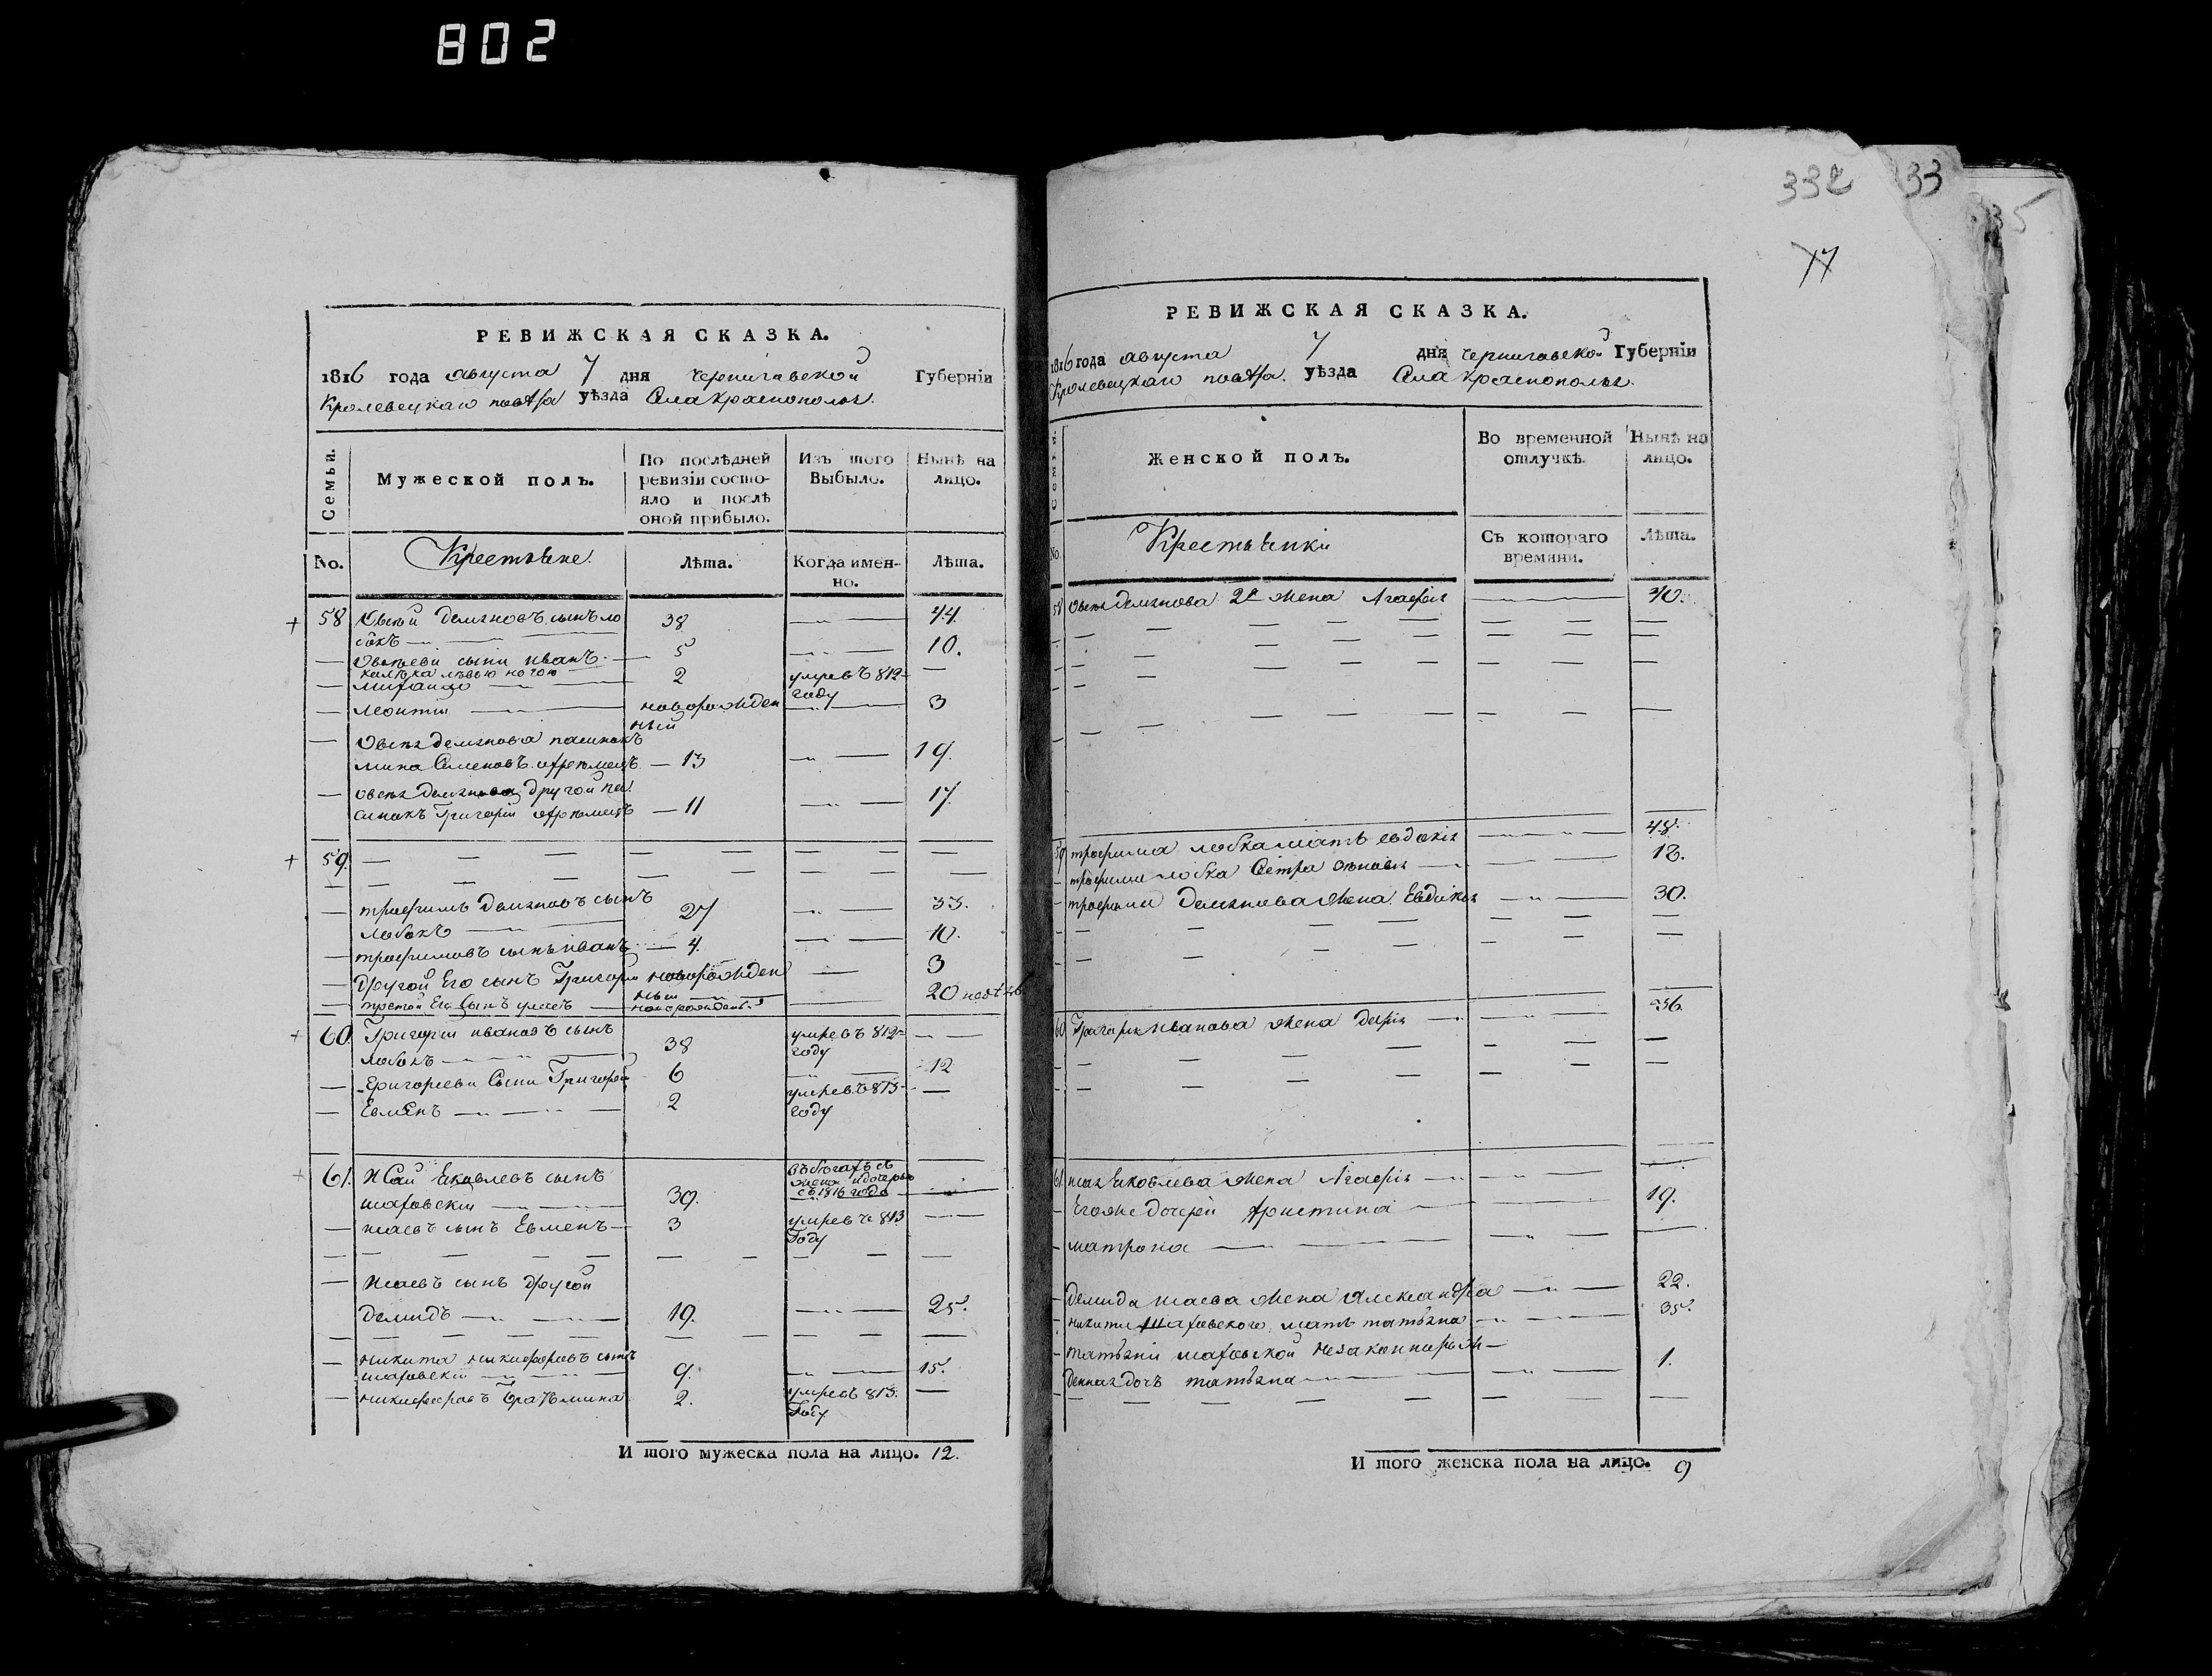 802
332
33
35
77
РЕВИЖСКАЯ СКАЗКА.
1816 года августа 7 дня черниговской Губерніи
Кролевецкаго повѣта уѣзда Села Краснополья.
Семьи.
Мужеской полъ.
По послѣдней
ревизіи состо-
яло и послѣ
оной прибыло.
Изъ того
Выбыло.
Нынѣ на
лицо.
No.
Крестьяне.
Лѣта.
Когда имен-
но.
Лѣта.
58 Овсѣй Демяновъ сынъ ло 38 44.
бокъ
Овсѣеви сыни иванъ 5 10.
калѣка лѣвою ногою
михайло 2 умревъ 812
году
Леонтій новорожден 3
ный
Овсѣя демянова пасинокъ
мина Семеновъ 13 19.
овсѣя Демянова другой па
синокъ Григорій 11 17.
59.
трофимъ Демяновъ сынъ 27 33.
Лобокъ
трофимовъ сынъ иванъ 4. 10.
Другой Его сынъ Григорій новорожден 3
ный
третій Его сынъ новорожден. 20 нед
60. Григорій ивановъ сынъ 38 умревъ 812
Лобокъ году
Григорieви Сыни Григорей 6 12
Евменъ 2 умревъ 813
году
61. Исай Яковлевъ сынъ 39. въ бѣгахъ съ
женою и дочерью
съ 1816 года
шаповскій
исаевъ сынъ Евменъ 3 умревъ 813
Году
Исаевъ сынъ другой
Демидъ 19. 25.
никита никифоровъ сынъ 9. 15.
никифоровъ братъ мина 2. умревъ 813.
Году
И того мужеска пола на лицо. 12.
РЕВИЖСКАЯ СКАЗКА.
1816 года августа 7 дня черниговской Губерніи
Кролевецкаго повѣта. уѣзда Села Краснополья.
Семьи.
Женской полъ.
Во временной
отлучкѣ.
Нынѣ на
лицо.
No.
Крестьянки
Съ котораго
времяни.
Лѣта.
58 Овсѣя демянова 2я жена Агафія 40.
59 трофима лобка мать евдокія 48.
трофима лобка Сестра зѣновія 18.
трофима Демянова жена Евдокія 30.
60 Григорія иванова жена Дарія 36.
61. исая Яковлева жена Агафія
Его же дочери христина 19.
матрона
Демида исаева жена Александра 22.
никиты шаповского мать татьяна 35.
татьяни шаповской незаконнорож
денная дочь татьяна 1.
И того женска пола на лицо. 9